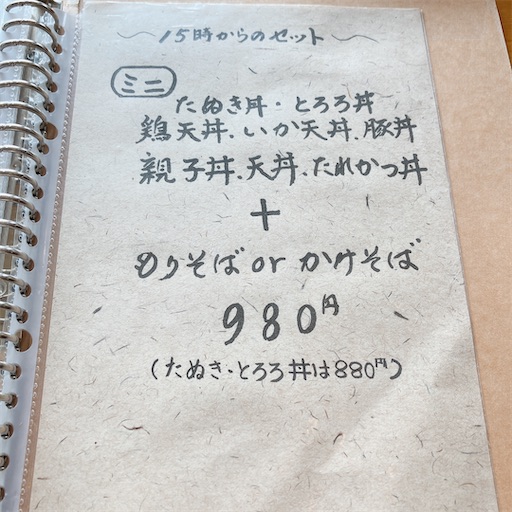 〜15時からのセット〜
ミニ
たぬき丼・とろろ丼
鶏天丼、いか天丼、豚丼
親子丼、天丼、たれかつ丼
+
もりそば or かけそば
980円
(たぬき・とろろ丼は880円)